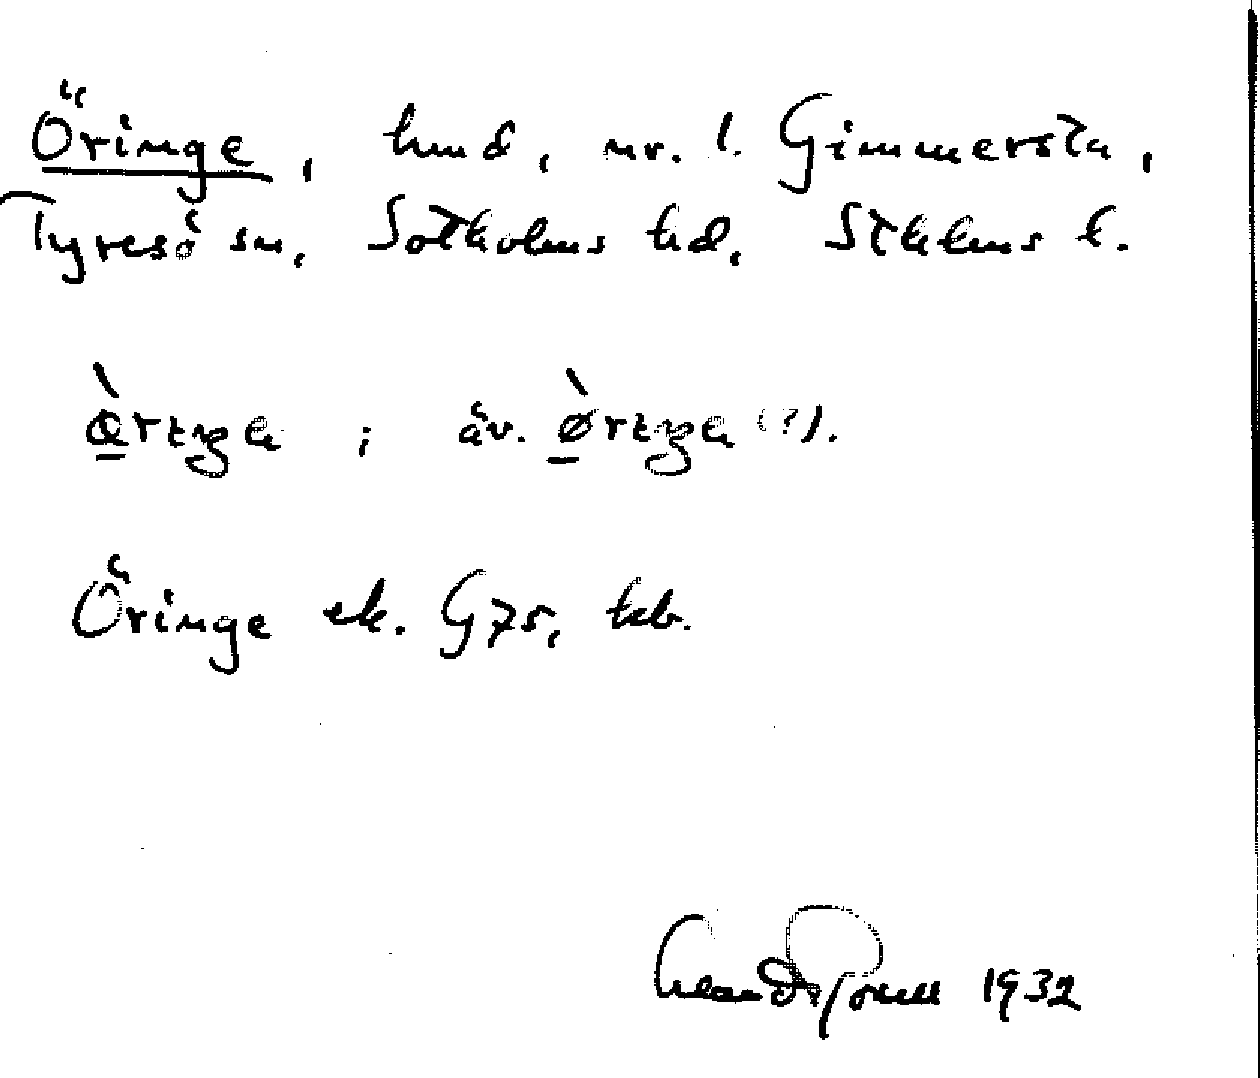 Öringe, hmd, nr. 1. Gimmersta,
Tyresö sn, Sotholms hd, Sthlms l.
; äv. (?).
Öringe ek. G75,
1932